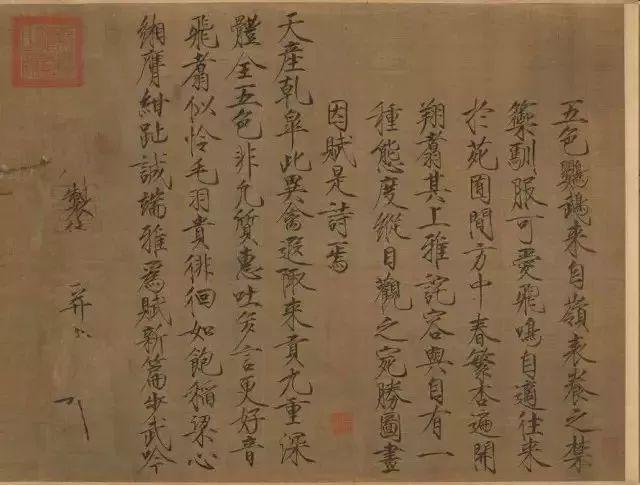 五色鸚鵡來自嶺表養之禁
籞馴服可愛飛鳴自適往來
於苑囿間方中春繁杏遍開
翔翥其上雅詫容與自有一
種態度縱目觀之宛勝圖畫
因賦是詩焉
天產乾皋此異禽遐陬來貢九重深
體全五色非凡質惠吐多言更好音
飛翥似憐毛羽貴徘徊如飽稻粱心
緗膺紺趾誠端雅為賦新篇步武吟
製
并